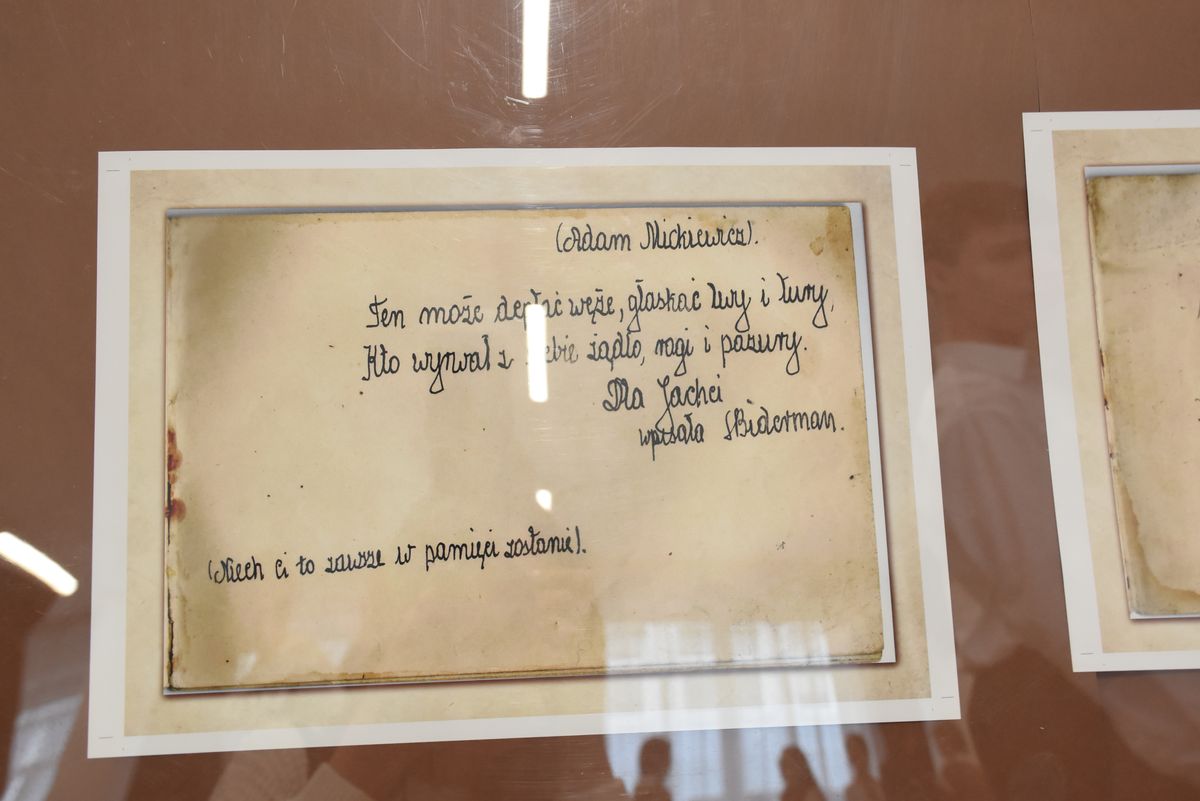 (Adam Mickiewicz).
Ten może deptać węże, głaskać lwy i tury,
Kto wyrwał z siebie żądło, rogi i pazury.
Dla Jachci
wpisała SBiderman.
(Niech ci to zawsze w pamięci zostanie).